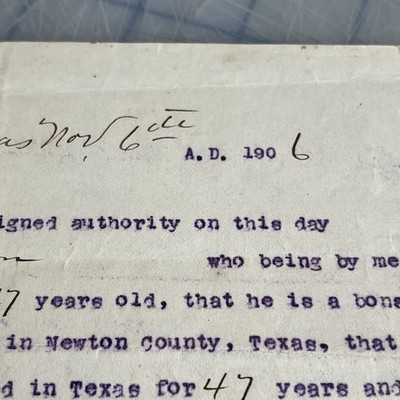 as Nov. 6th
A.D. 1906
igned authority on this day
who being by me
7 years old, that he is a bona
in Newton County, Texas, that
d in Texas for 47 years and